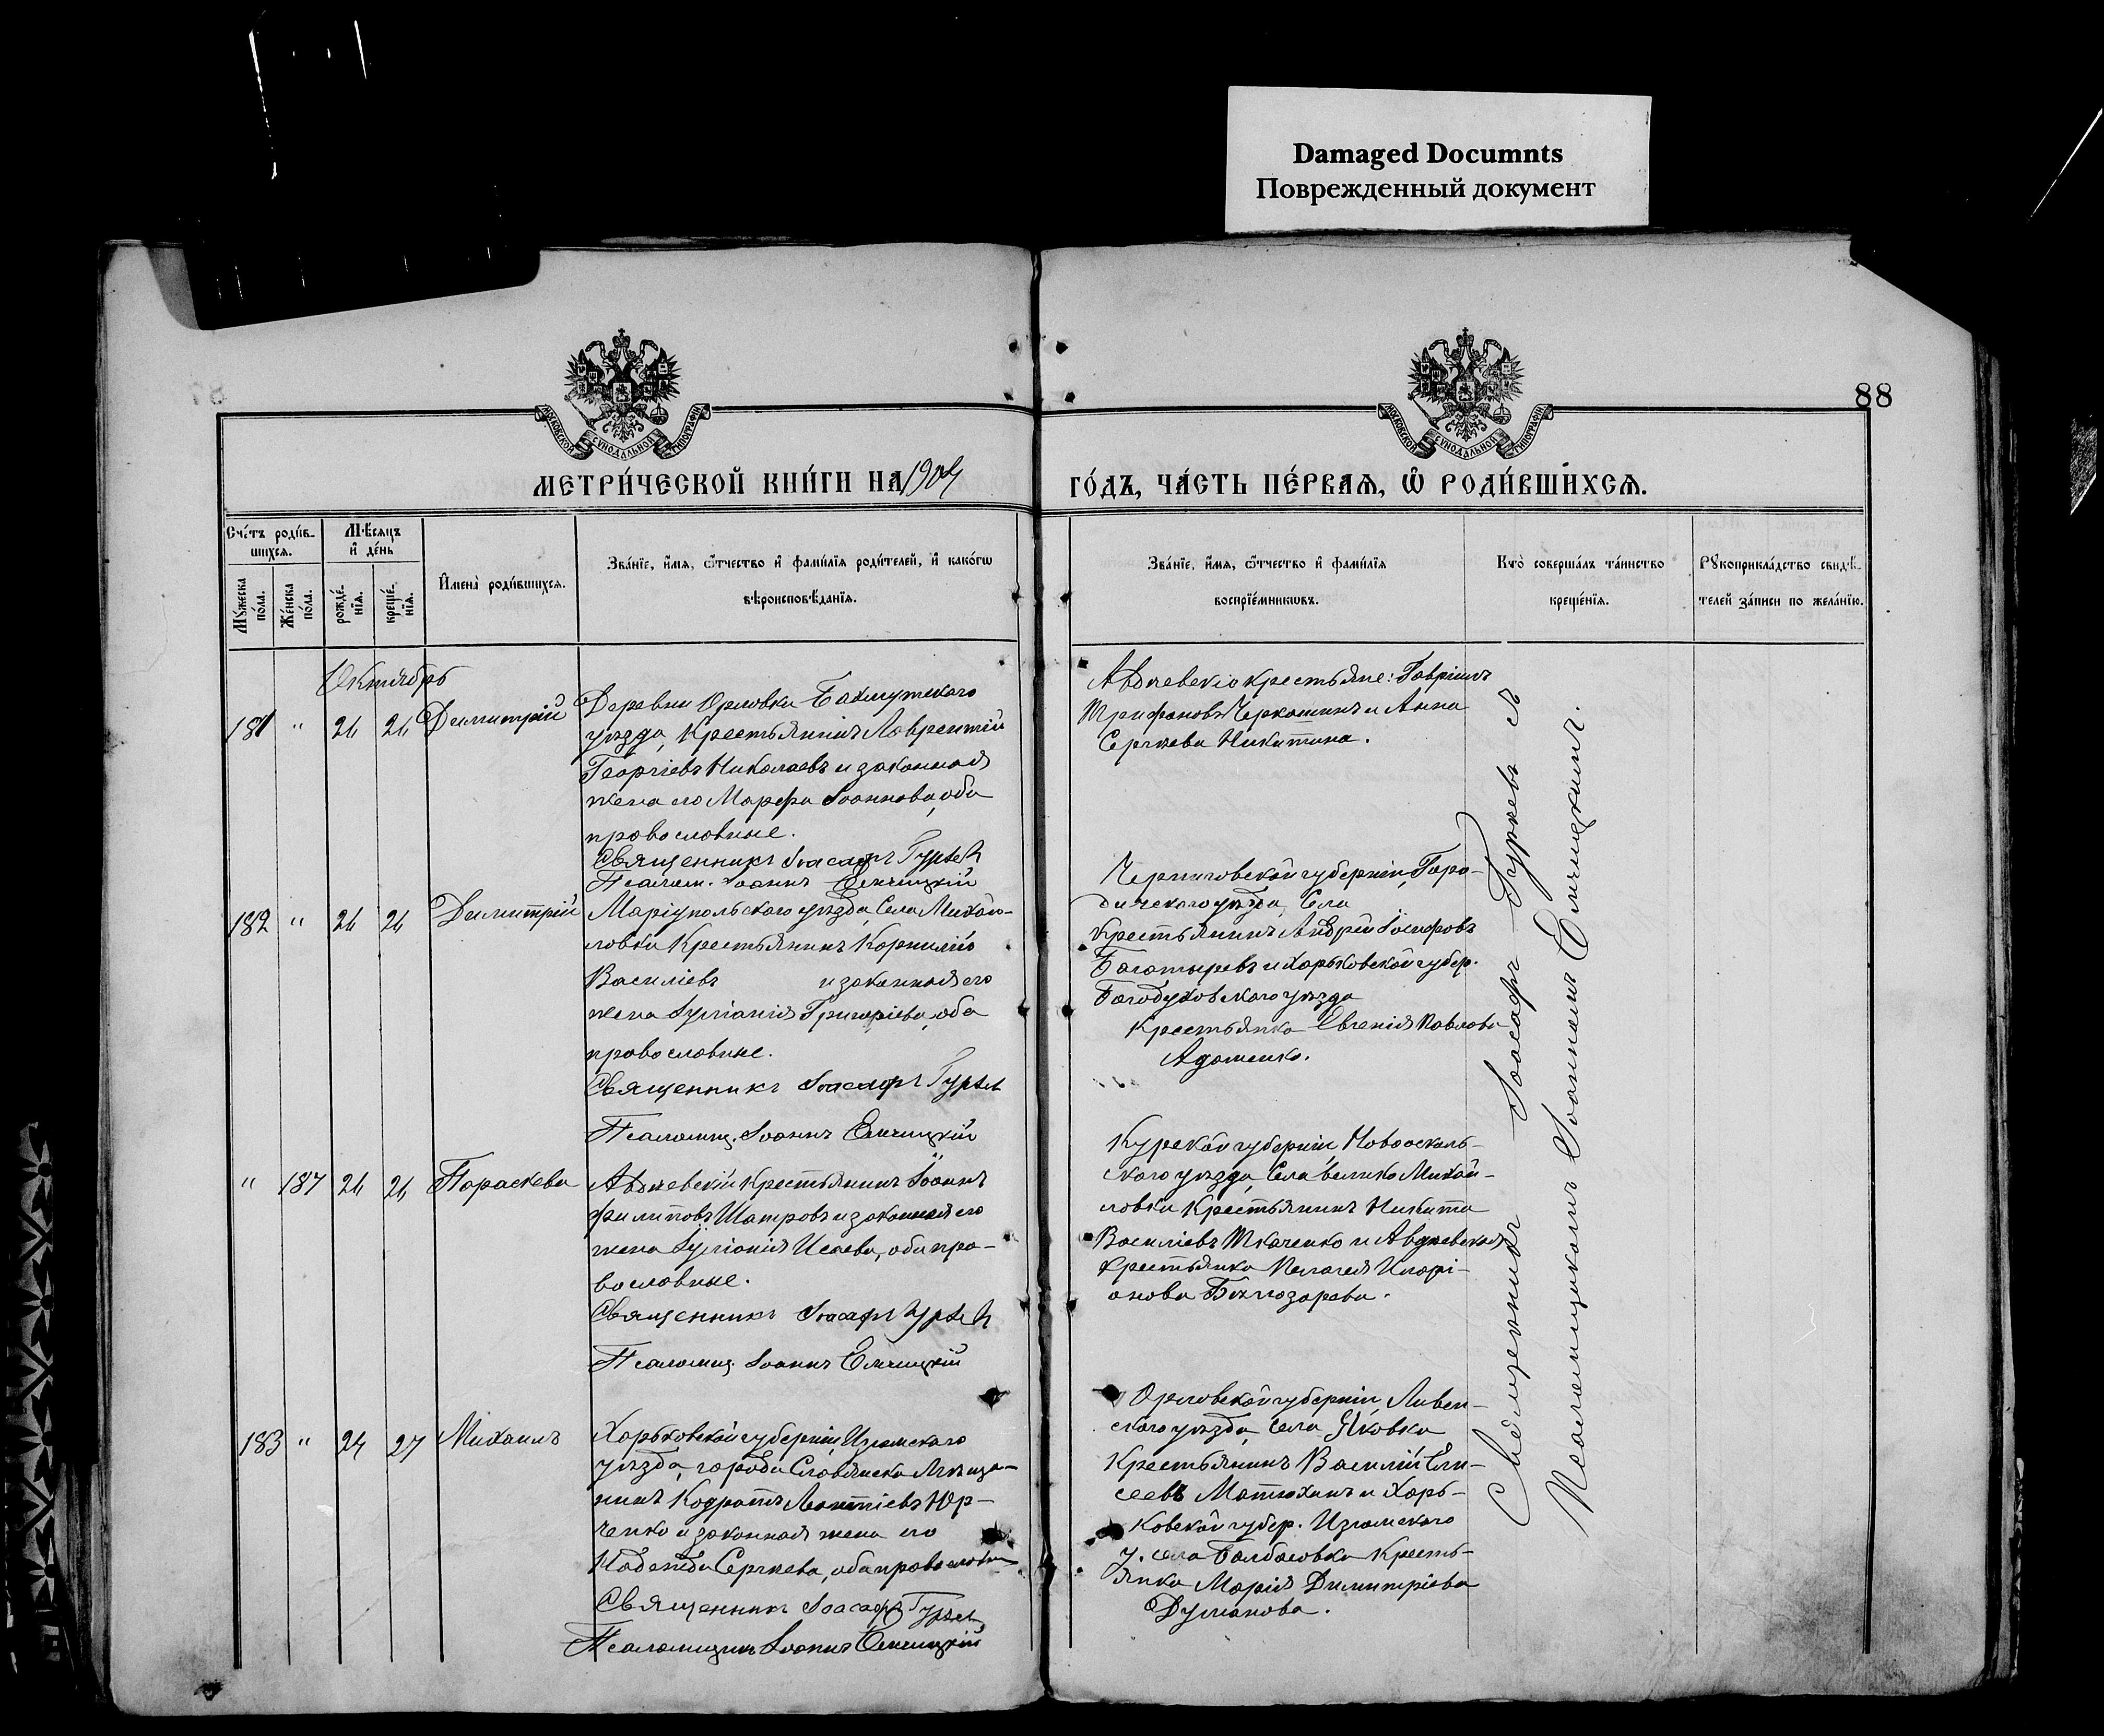 Damaged Documnts
Поврежденный документ
88
МОСКОВСКОЙ СѴНОДАЛЬНОЙ ТИПОГРАФІИ
МОСКОВСКОЙ СѴНОДАЛЬНОЙ ТИПОГРАФІИ
МЕТРИ́ЧЕСКОЙ КНИ́ГИ НА 1904
ГО́ДЪ, ЧА́СТЬ ПЕ́РВАЯ, Ѽ РОДИ́ВШИ́ХСѦ.
Сче́тъ роди́в-
шихся.
Мѣ́сяцъ
и҆ де́нь
Мꙋ́жеска по́ла.
Же́нска по́ла.
рожде́-нїя.
креще́-нїя.
И҆мена̀ роди́вшихся.
Зва́нїе, и҆́мя, ѻ҆́тчество и҆ фами́лїя роди́телей, и҆ како́гѡ
вѣроисповѣ́данїя.
Зва́нїе, и҆́мя, ѻ҆́тчество и҆ фами́лїя
воспрїе́мникѡвъ.
Кто̀ соверша́лъ та́инство
креще́нїя.
Рꙋкоприкла́дство свидѣ́-
телей за́писи по жела́нїю.
Октябрь
181 " 24 24 Димитрій
Деревни Орловки Бахмутскаго
уѣзда, Крестьянинъ Лаврентій
Георгіевъ Николаевъ и законная
жена его Марфа Іоаннова, оба
православные.
Священникъ Іоасафъ Гурьевъ
Псалом. Іоаннъ
Авдѣевскіе крестьяне: Гавріилъ
Трифоновъ Черкашинъ и Анна
Сергѣева Никитина.
182 " 24 24 Димитрій
Маріупольскаго уѣзда, Села Михай-
ловки Крестьянинъ Корнилій
Василіевъ и законная его
жена Іуліанія Григоріева, оба
православные.
Священникъ Іоасафъ Гурьевъ
Псаломщ. Іоаннъ
Черниговской губерніи, Горо-
днскаго уѣзда, Села
Крестьянинъ Андрей Іосифовъ
Богатыревъ и Харьковской губер.
Богодуховскаго уѣзда
Крестьянка Евгенія Павлова
Адаменко.
" 187 24 24 Параскева
Авдѣевскій Крестьянинъ Іоаннъ
Филиповъ Шатровъ и законная его
жена Іуліанія Исаева, оба пра-
вославные.
Священникъ Іоасафъ Гурьевъ
Псаломщ. Іоаннъ
Курской губерніи, Новооскол-
скаго уѣзда, Села Велико Михай-
ловки Крестьянинъ Никита
Василіевъ Ткаченко и Авдѣевская
Крестьянка Пелагея Иларі-
онова
183 " 24 27 Михаилъ
Харьковской губерніи, Изюмскаго
уѣзда, города Славянска Мѣща-
нинъ Кодратъ Леонтіевъ Юр-
ченко и законная жена его
Надежда Сергѣева, оба православные
Священникъ Іоасафъ Гурьевъ
Псаломщикъ Іоаннъ
Орловской губерніи, Ливен-
скаго уѣзда, села Яковка
Крестьянинъ Василій Ели-
сеевъ Матюхинъ и Харь-
ковской губер. Изюмскаго
у. села Балбасовка Кресть-
янка Марія Димитріева
Думанова.
Священникъ Іоасафъ Гурьевъ съ
Псаломщикомъ Іоанномъ